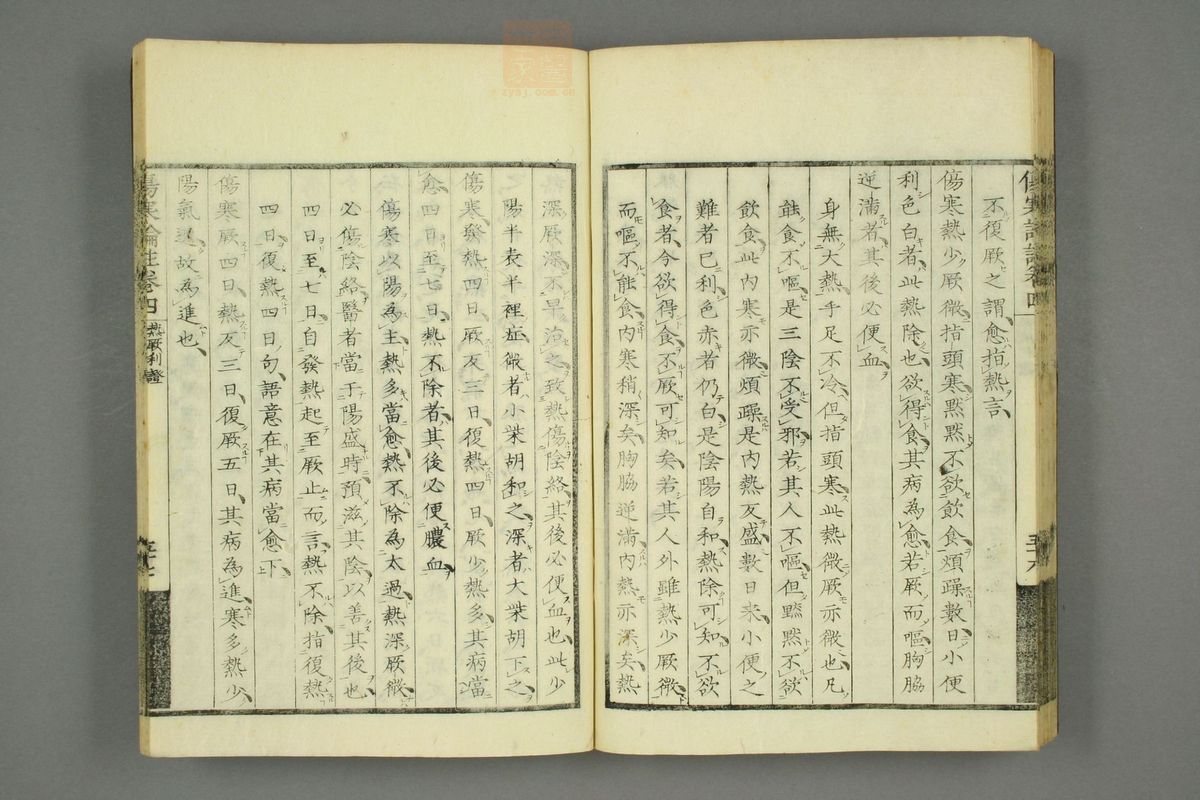 傷寒論註卷四
不復厥之謂愈指熱言
傷寒熱少厥微指頭寒默默不欲飲食煩躁數日小便
利色白者此熱除也欲得食其病為愈若厥而嘔胸脇
逆滿者其後必便血
身無大熱手足不冷但指頭寒此熱微厥亦微也凡
能食不嘔是三陰不受邪若其人不嘔但默默不欲
飲食此內寒亦微煩躁是內熱反盛數日来小便之
難者已利色赤者仍白是陰陽自和熱除可知不欲
食者今欲得食不厥可知矣若其人外雖熱少厥微
而嘔不能食內寒稍深矣胸脇逆滿內熱亦深矣熱
深厥深不早治之致熱傷陰絡其後必便血也此少
陽半表半裡症微者小柴胡和之深者大柴胡下之
傷寒發熱四日厥反三日復熱四日厥少熱多其病當
愈四日至七日熱不除者其後必便膿血
傷寒以陽為主熱多當愈熱不除為太過熱深厥微
必傷陰絡醫者當于陽盛時預滋其陰以善其後也
四日至七日自發熱起至厥止而言熱不除指復熱
四日復熱四日句語意在其病當愈下
傷寒厥四日熱反三日復厥五日其病為進寒多熱少
陽氣退故為進也
傷寒論註卷四 熱厥利證
zysj.com.cn